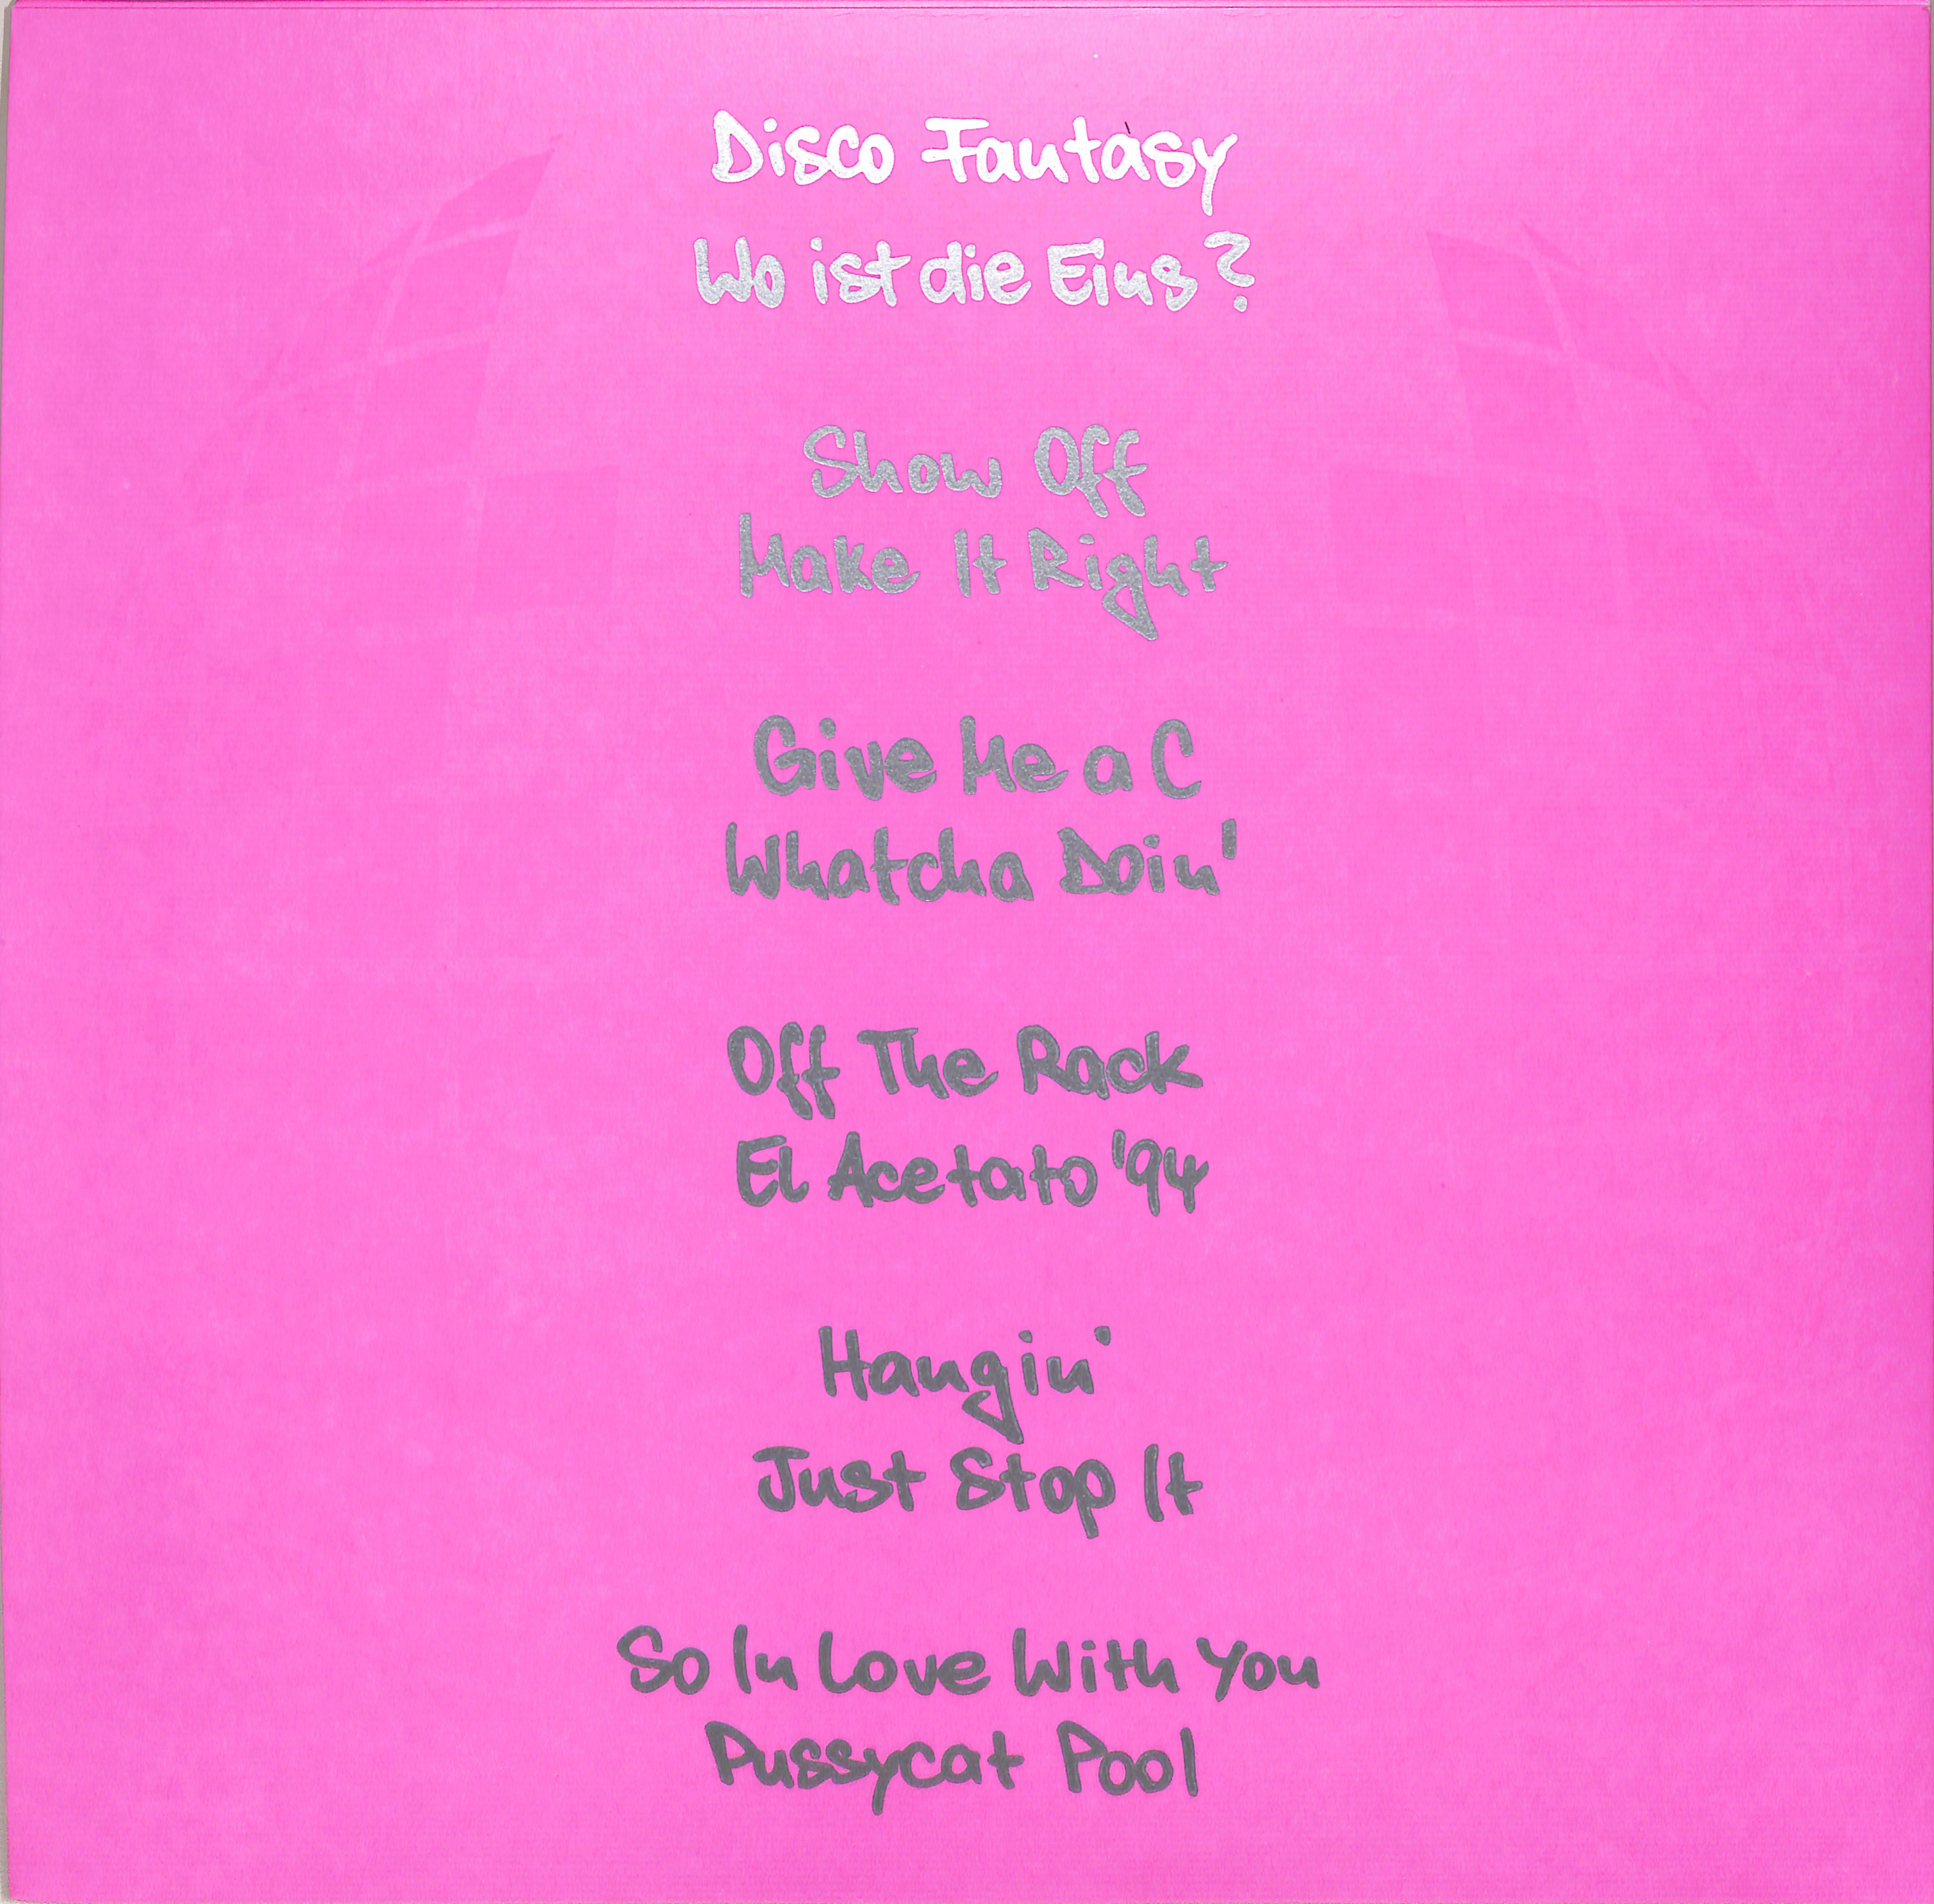 Disco Fantasy
Wo ist die Eins?
Show Off
Make It Right
Give Me a C
Whatcha Doin'
Off The Rack
El Acetato '94
Hangin'
Just Stop It
So In Love With You
Pussycat Pool